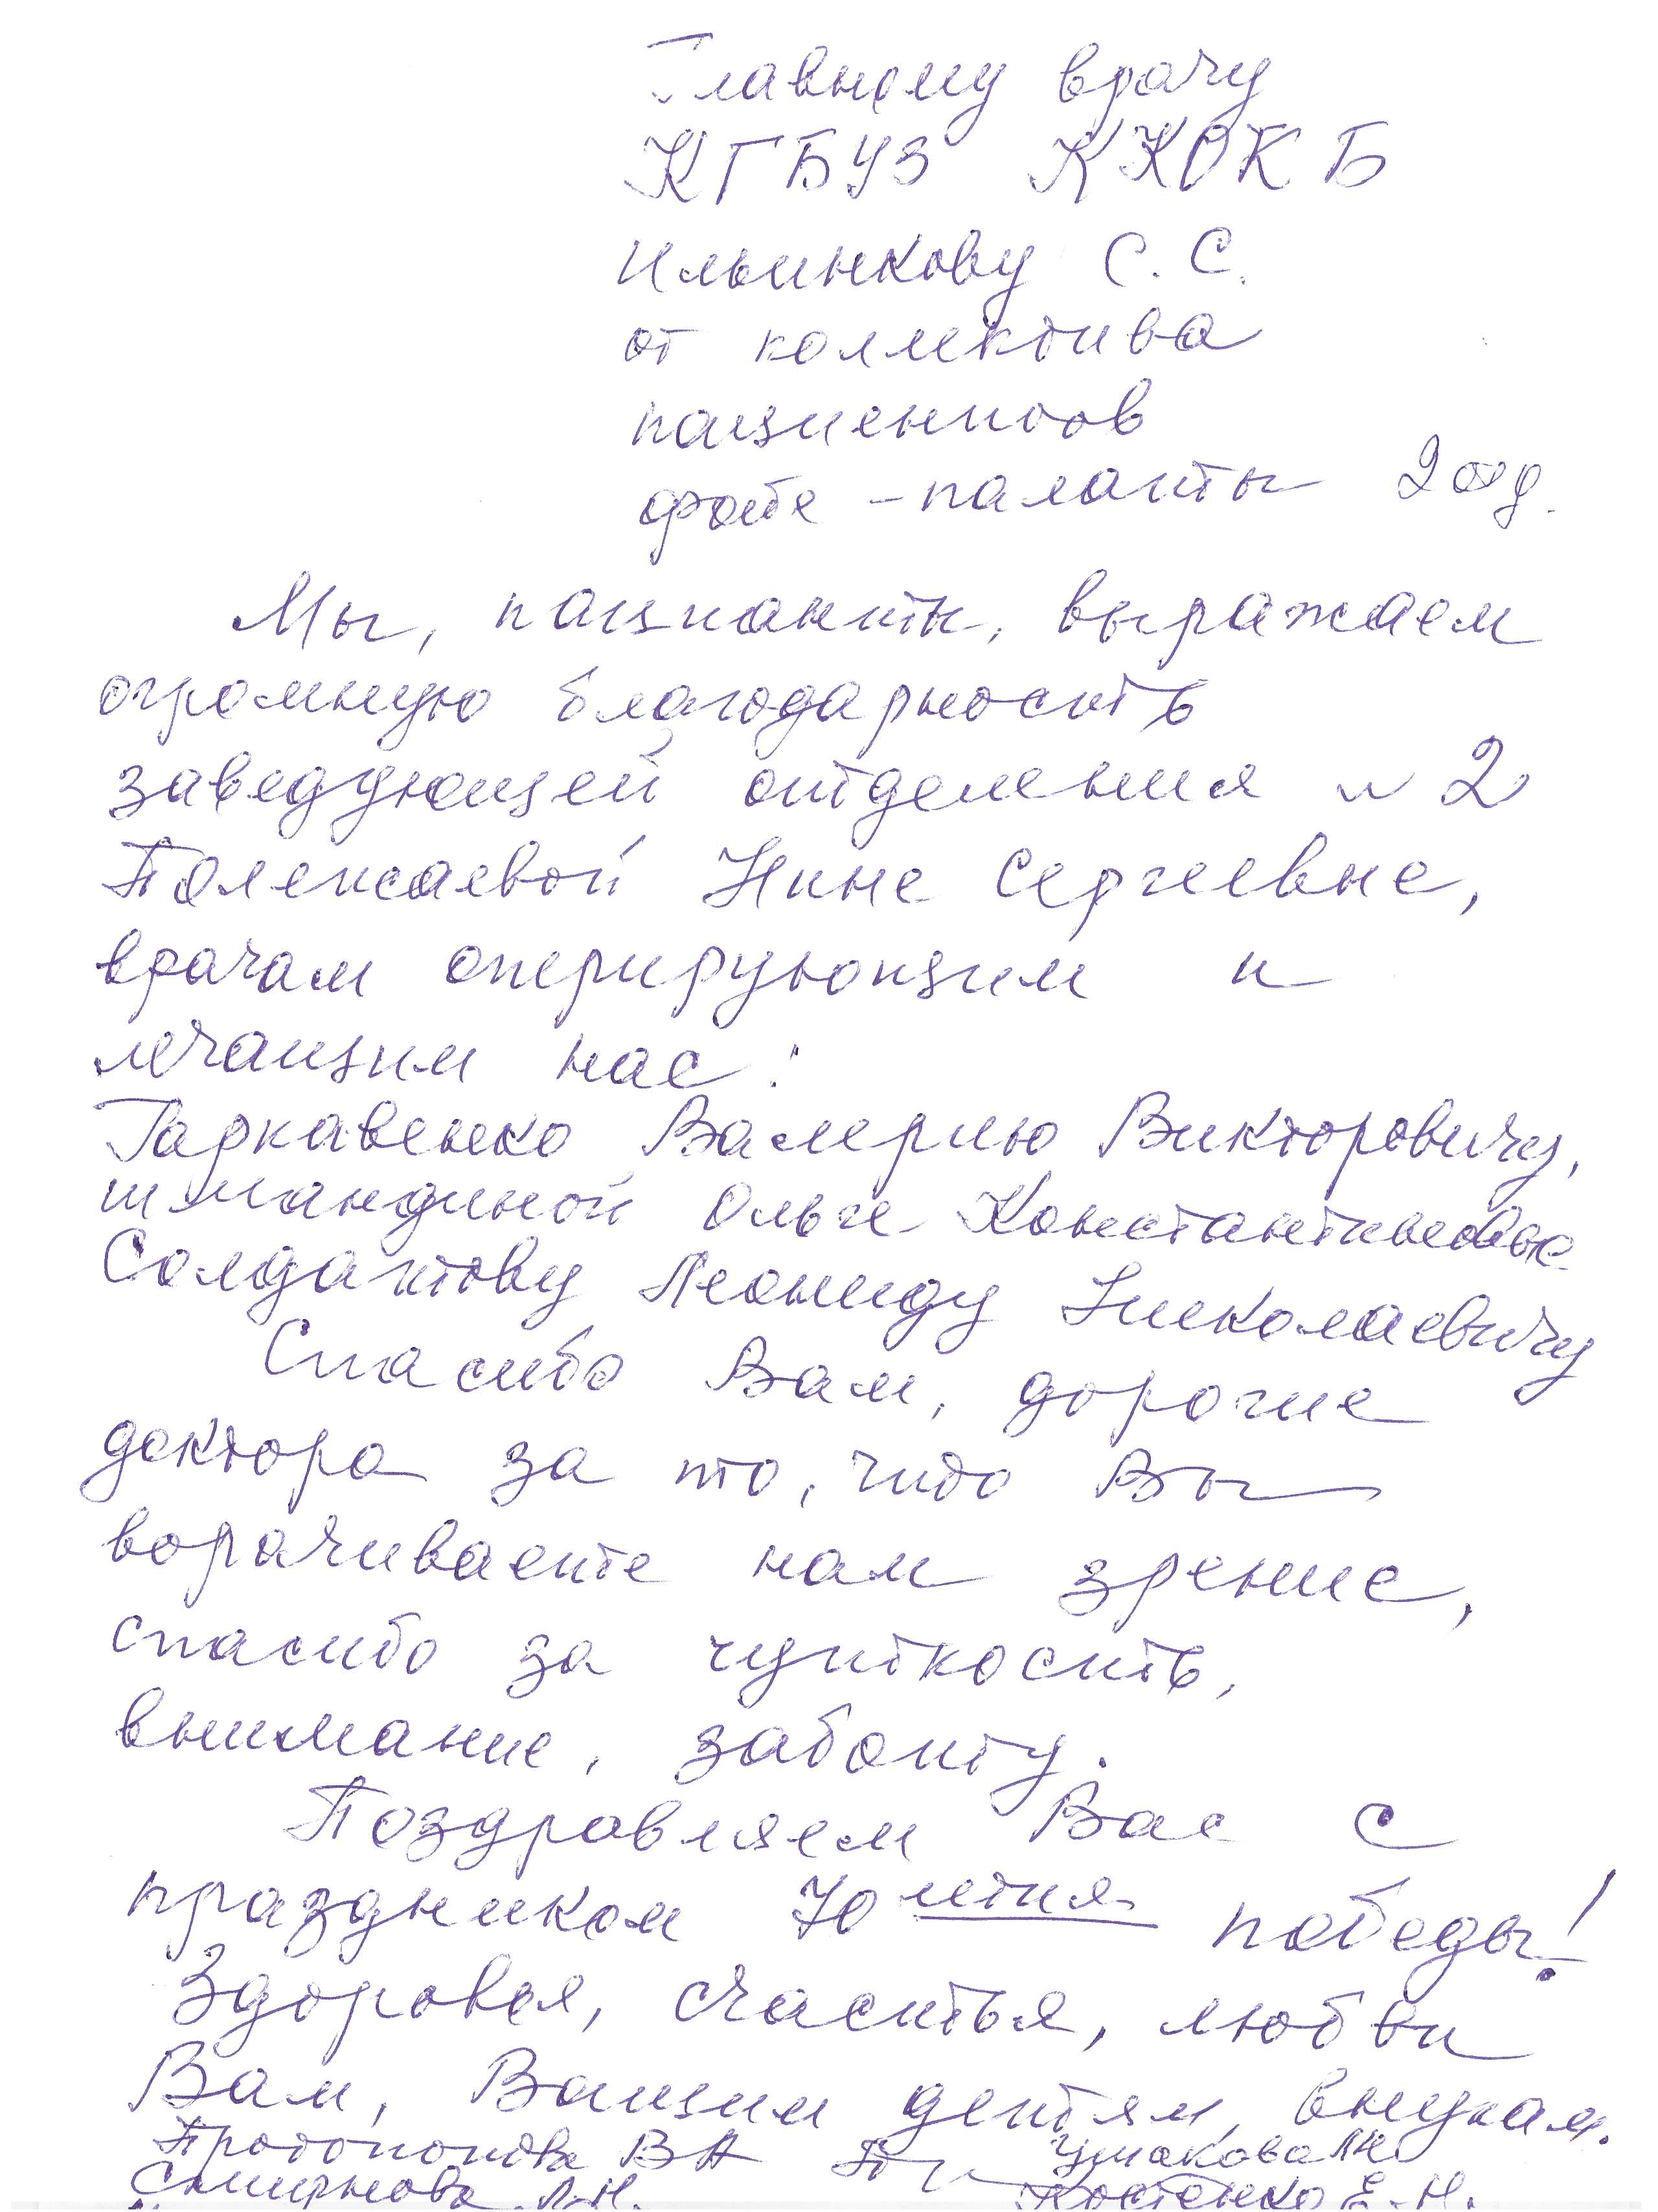 Главному врачу
КГБУЗ ККОКБ
Ильинкову С. С.
от коллектива
пациентов
фойе - палаты 2 отд.
Мы, пациенты, выражаем
огромную благодарность
заведующей отделения № 2
Полексаевой Нине Сергеевне,
врачам оперирующим и
лечащим нас:
Гаркавенко Валерию Викторовичу,
Шмандиной Ольге Константиновне
Солдатову Леониду Николаевичу
Спасибо Вам, дорогие
доктора за то, что Вы
ворачиваете нам зрение,
спасибо за чуткость,
внимание, заботу.
Поздравляем Вас с
праздником 70 летия победы!
Здоровья, счастья, любви
Вам, Вашим детям, внукам.
Протопопова ВА Ушакова ЛН
Смирнова Л.Н. Костенко Е.Н.